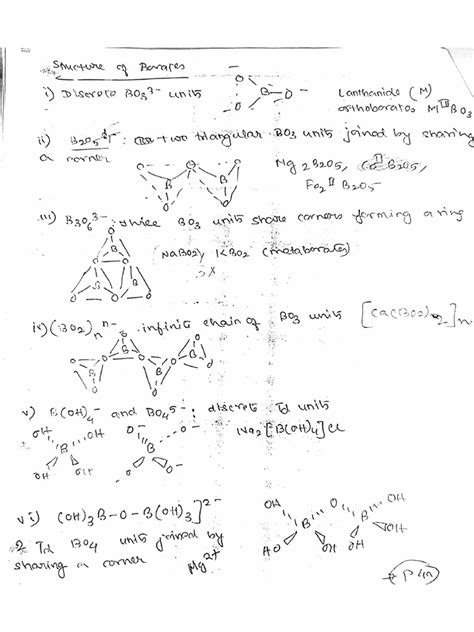 Structure of Borates
i) Discrete BO3 3- units
O- B O- O-
Lanthanide (M)
orthoborates M III BO3
ii) B2O5 4- : two triangular BO3 units joined by sharing
a corner
Mg2B2O5, Co2 II B2O5,
Fe2 II B2O5
iii) B3O6 3- : thrice BO3 units share corners forming a ring
NaBO2, KBO2 (metaborates)
3x
iv) (BO2)n n- : infinite chain of BO3 units [Ca(BO2)2]n
v) B(OH)4- and BO4 5- : discrete Td units
Na2[B(OH)4]Cl
OH OH B OH OH
O- O- B O- O-
vi) (OH)3B-O-B(OH)3]2-
2 Td BO4 units joined by
sharing a corner Mg2+
OH O OH
B B OH
HO OH OH